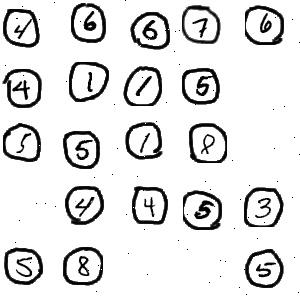 4 6 6 7 6
4 1 1 5
5 5 1 8
4 4 5 3
5 8 5